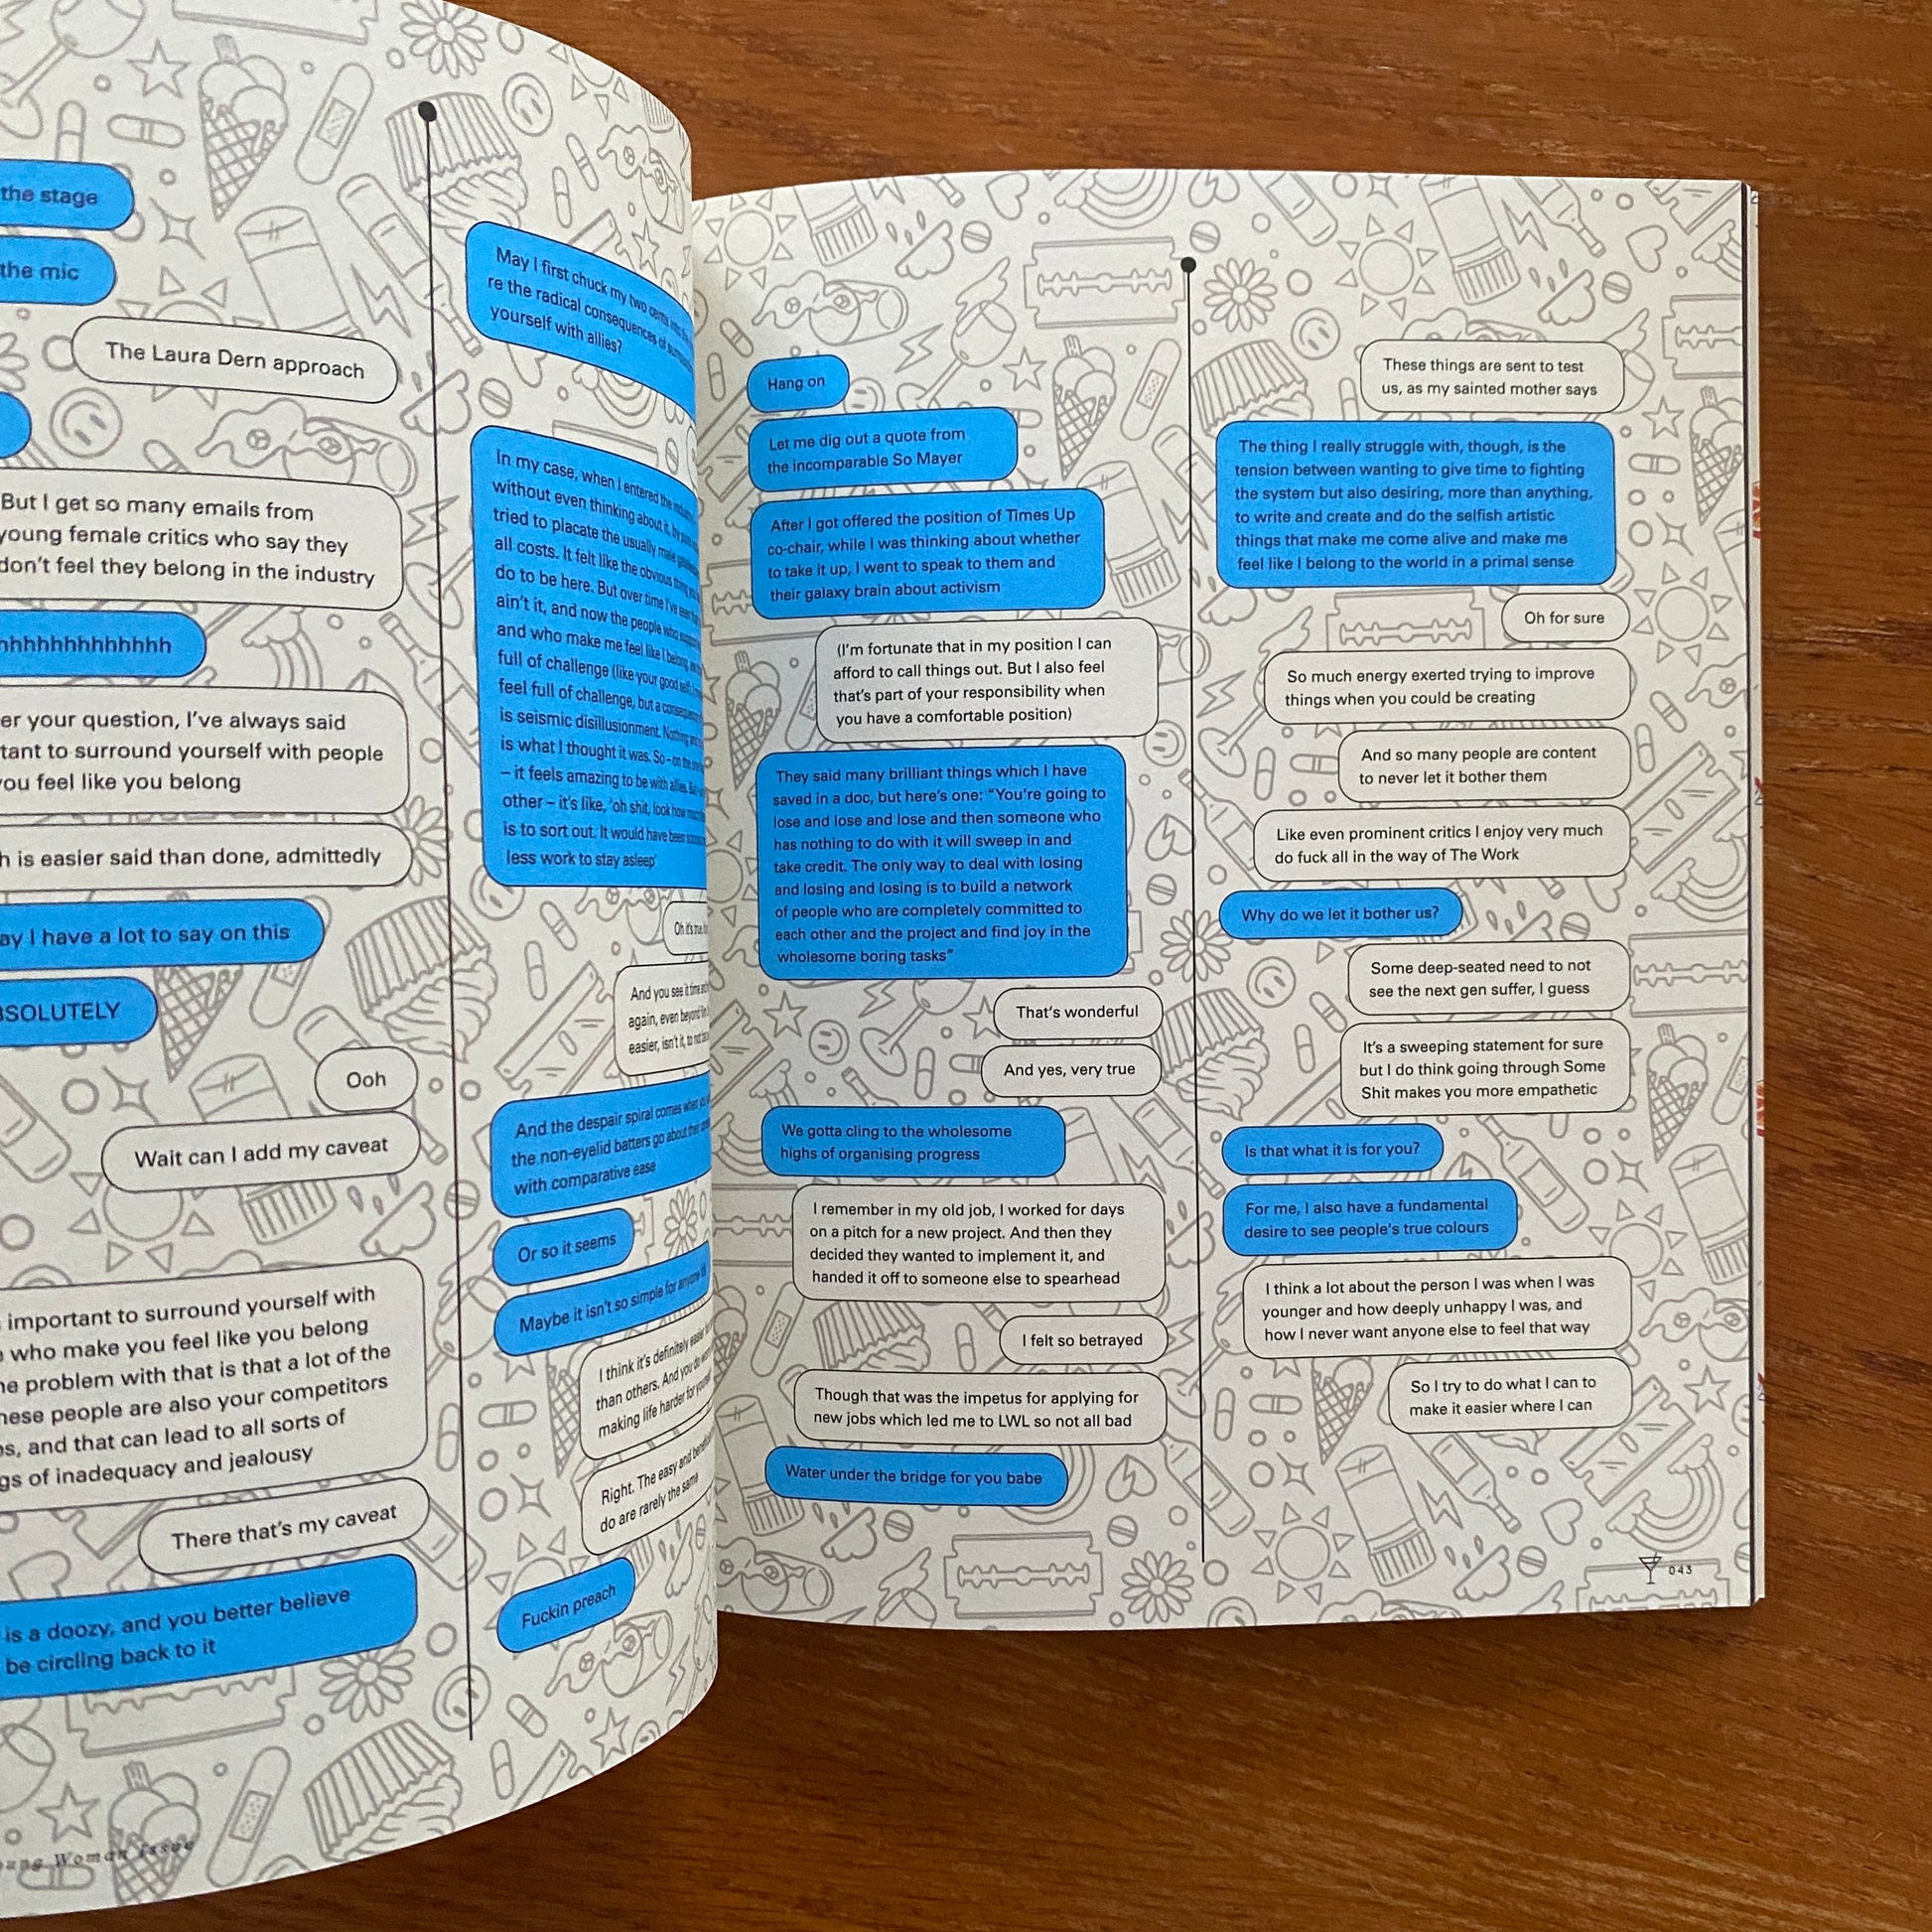 the stage
the mic
The Laura Dern approach
But I get so many emails from
young female critics who say they
don't feel they belong in the industry
hhhhhhhhhhhhh
er your question, I've always said
tant to surround yourself with people
you feel like you belong
h is easier said than done, admittedly
ay I have a lot to say on this
BSOLUTELY
Ooh
Wait can I add my caveat
important to surround yourself with
who make you feel like you belong
problem with that is that a lot of the
these people are also your competitors
and that can lead to all sorts of
gs of inadequacy and jealousy
There that's my caveat
is a doozy, and you better believe
be circling back to it
Woman Issue
May I first chuck my two cents into the
re the radical consequences of
yourself with allies?
In my case, when I entered the industry
without even thinking about it, by
tried to placate the usually male
all costs. It felt like the obvious thing
do to be here. But over time I've
ain't it, and now the people who
and who make me feel like I belong
full of challenge (like your good self)
feel full of challenge, but a consequence
is seismic disillusionment. Nothing
is what I thought it was. So – on the one
– it feels amazing to be with allies.
other – it's like, 'oh shit, look how much
is to sort out. It would have been
less work to stay asleep'
Oh it's true
And you see it time and
again, even beyond
easier, isn't it, to not
And the despair spiral comes when you
the non-eyelid batters go about their
with comparative ease
Or so it seems
Maybe it isn't so simple for anyone
I think it's definitely easier
than others. And you do
making life harder for
Right. The easy and
do are rarely the same
Fuckin preach
Hang on
Let me dig out a quote from
the incomparable So Mayer
After I got offered the position of Times Up
co-chair, while I was thinking about whether
to take it up, I went to speak to them and
their galaxy brain about activism
(I'm fortunate that in my position I can
afford to call things out. But I also feel
that's part of your responsibility when
you have a comfortable position)
They said many brilliant things which I have
saved in a doc, but here's one: "You're going to
lose and lose and lose and then someone who
has nothing to do with it will sweep in and
take credit. The only way to deal with losing
and losing and losing is to build a network
of people who are completely committed to
each other and the project and find joy in the
wholesome boring tasks"
That's wonderful
And yes, very true
We gotta cling to the wholesome
highs of organising progress
I remember in my old job, I worked for days
on a pitch for a new project. And then they
decided they wanted to implement it, and
handed it off to someone else to spearhead
I felt so betrayed
Though that was the impetus for applying for
new jobs which led me to LWL so not all bad
Water under the bridge for you babe
These things are sent to test
us, as my sainted mother says
The thing I really struggle with, though, is the
tension between wanting to give time to fighting
the system but also desiring, more than anything,
to write and create and do the selfish artistic
things that make me come alive and make me
feel like I belong to the world in a primal sense
Oh for sure
So much energy exerted trying to improve
things when you could be creating
And so many people are content
to never let it bother them
Like even prominent critics I enjoy very much
do fuck all in the way of The Work
Why do we let it bother us?
Some deep-seated need to not
see the next gen suffer, I guess
It's a sweeping statement for sure
but I do think going through Some
Shit makes you more empathetic
Is that what it is for you?
For me, I also have a fundamental
desire to see people's true colours
I think a lot about the person I was when I was
younger and how deeply unhappy I was, and
how I never want anyone else to feel that way
So I try to do what I can to
make it easier where I can
043